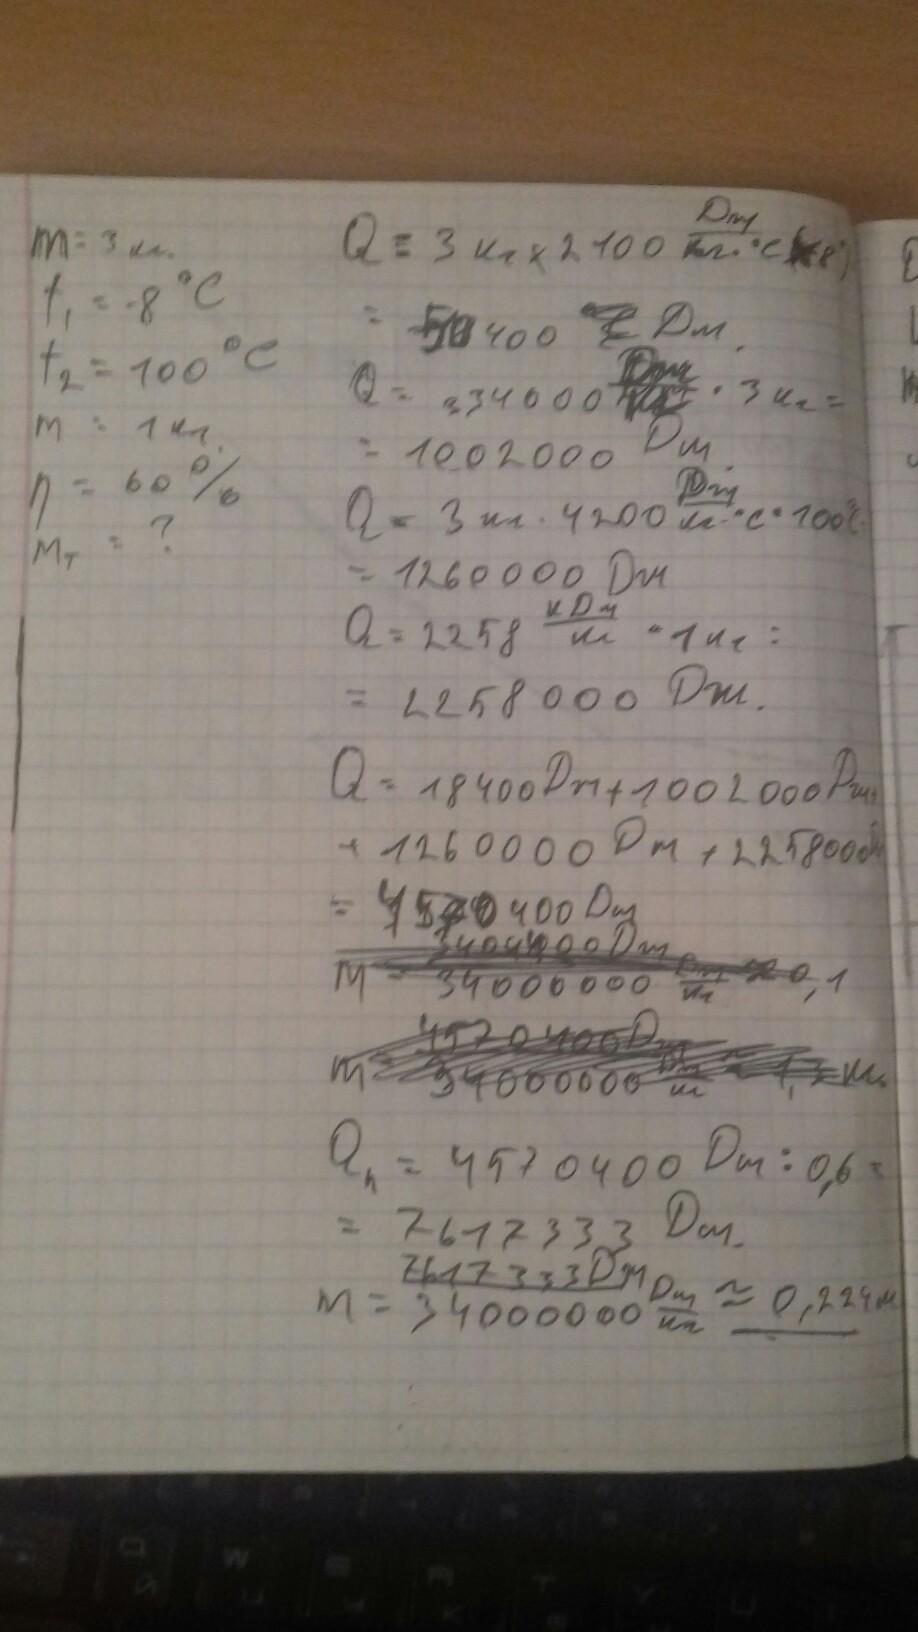 m = 3 кг.
t₁ = -8 °C
t₂ = 100 °C
m = 1 кг.
η = 60 %
mт = ?
Q = 3 кг × 2100 Дж/кг·°C (-8°)
= 50400 Дж.
Q = 334000 Дж/кг · 3 кг =
= 1002000 Дж.
Q = 3 кг · 4200 Дж/кг·°C · 100°C
= 1260000 Дж
Q = 2258 кДж/кг · 1 кг =
= 2258000 Дж.
Q = 18400 Дж + 1002000 Дж +
+ 1260000 Дж + 2258000
= 4570400 Дж
m = 3404400 Дж / 34000000 Дж/кг ≈ 0,1
m = 4570400 Дж / 34000000 Дж/кг ≈ 1,3 кг.
Qп = 4570400 Дж : 0,6 =
= 7617333 Дж.
m = 7617333 Дж / 34000000 Дж/кг ≈ 0,224 кг